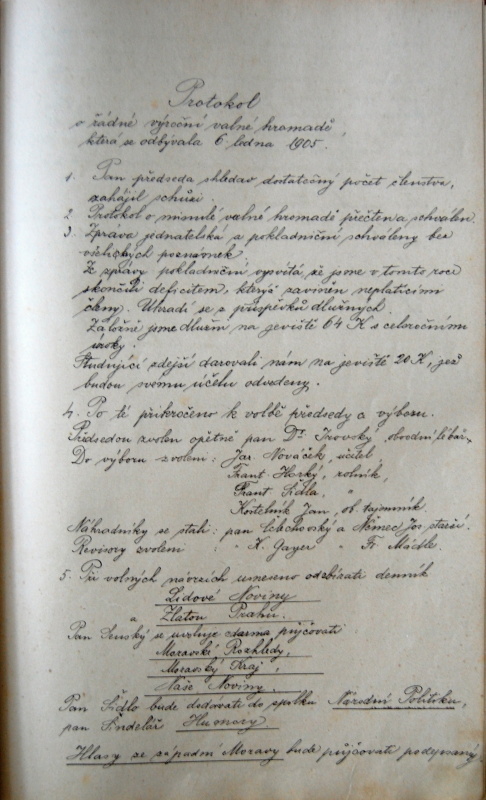 Protokol
o řádné výroční valné hromadě,
která se odbývala 6 ledna 1905.
1. Pan předseda shledav dostatečný počet členstva,
zahájil schůzi.
2. Protokol o minulé valné hromadě přečten a schválen.
3. Zpráva jednatelská a pokladniční schváleny bez
všelikých poznámek.
Z zprávy pokladniční vysvítá, že jsme v tomto roce
skončili deficitem, který zaviněn neplatícími
členy. Uhradí se z příspěvků dlužných.
Záložně jsme dlužni na jeviště 64 K s celoročními
úroky.
Studující zdejší darovali nám na jeviště 20 K, jež
budou svému účelu odvedeny.
4. Po té přikročeno k volbě předsedy a výboru.
Předsedou zvolen opětně pan Dr. obvodní lékař.
Do výboru zvoleni: Jos. Nováček, učitel,
Frant Horký, rolník,
Frant Šidla, "
Kostelník Jan, ob. tajemník.
Náhradníky se stali: pan a Němec Jos starší.
Revisory zvoleni " K. Gayer " Fr. Mádle.
5. Při volných návrzích usneseno odebírati denník
Lidové Noviny
a Zlatou Prahu.
Pan se uvoluje zdarma půjčovati
Moravské Rozhledy,
Moravský Kraj,
Naše Noviny.
Pan Šidlo bude dodávati do spolku Národní Politiku,
pan Šindelář Humory
Hlasy ze západní Moravy bude půjčovati podepsaný